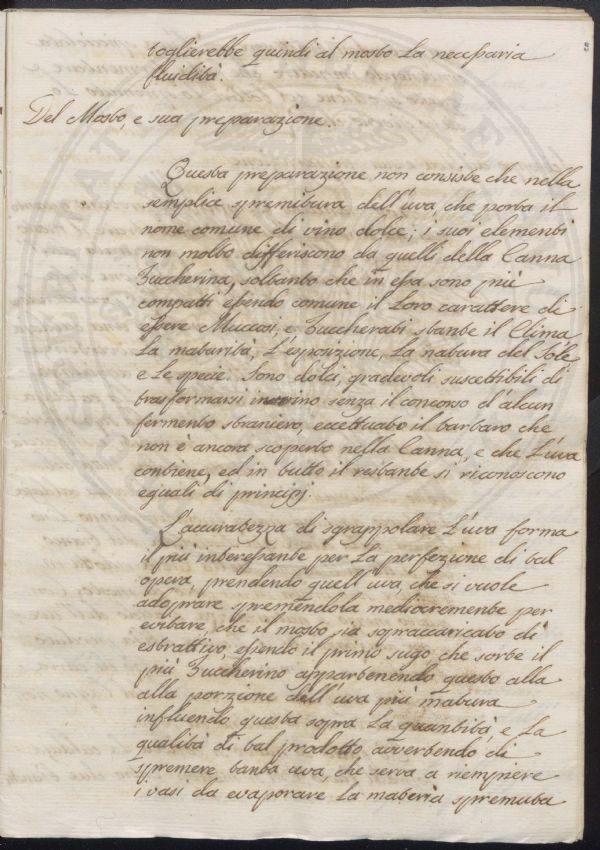 toglierebbe quindi al mosto la necessaria
fluidità.
Del Mosto, e sua preparazione.
Questa preparazione non consiste che nella
semplice spremitura dell'uva, che porta il
nome comune di vino dolce; i suoi elementi
non molto differiscono da quelli della Canna
Zuccherina, soltanto che in essa sono più
compatti essendo comune il loro carattere di
essere Muccosi, e Zuccherati stante il Clima,
la maturità, l'esposizione, la natura del Sole
e le specie. Sono dolci, gradevoli suscettibili di
trasformarsi in vino senza il concorso d'alcun
fermento straniero, eccettuato il barbaro che
non è ancora scoperto nella Canna, e che l'uva
contiene, ed in tutto il restante si riconoscono
eguali di principj.
L'accuratezza di sgrappolare l'uva forma
il più interessante per la perfezione di tal
opera, prendendo quell'uva, che si vuole
adoprare spremendola mediocremente per
evitare, che il mosto sia sopraccaricato di
estrattivo, essendo il primo sugo, che sorte il
più Zuccherino appartenendo questo alla
alla porzione dell'uva più matura
influendo questa sopra la quantità, e la
qualità di tal prodotto avvertendo di
spremere tanta uva, che serva a riempiere
i vasi da evaporare la materia spremuta